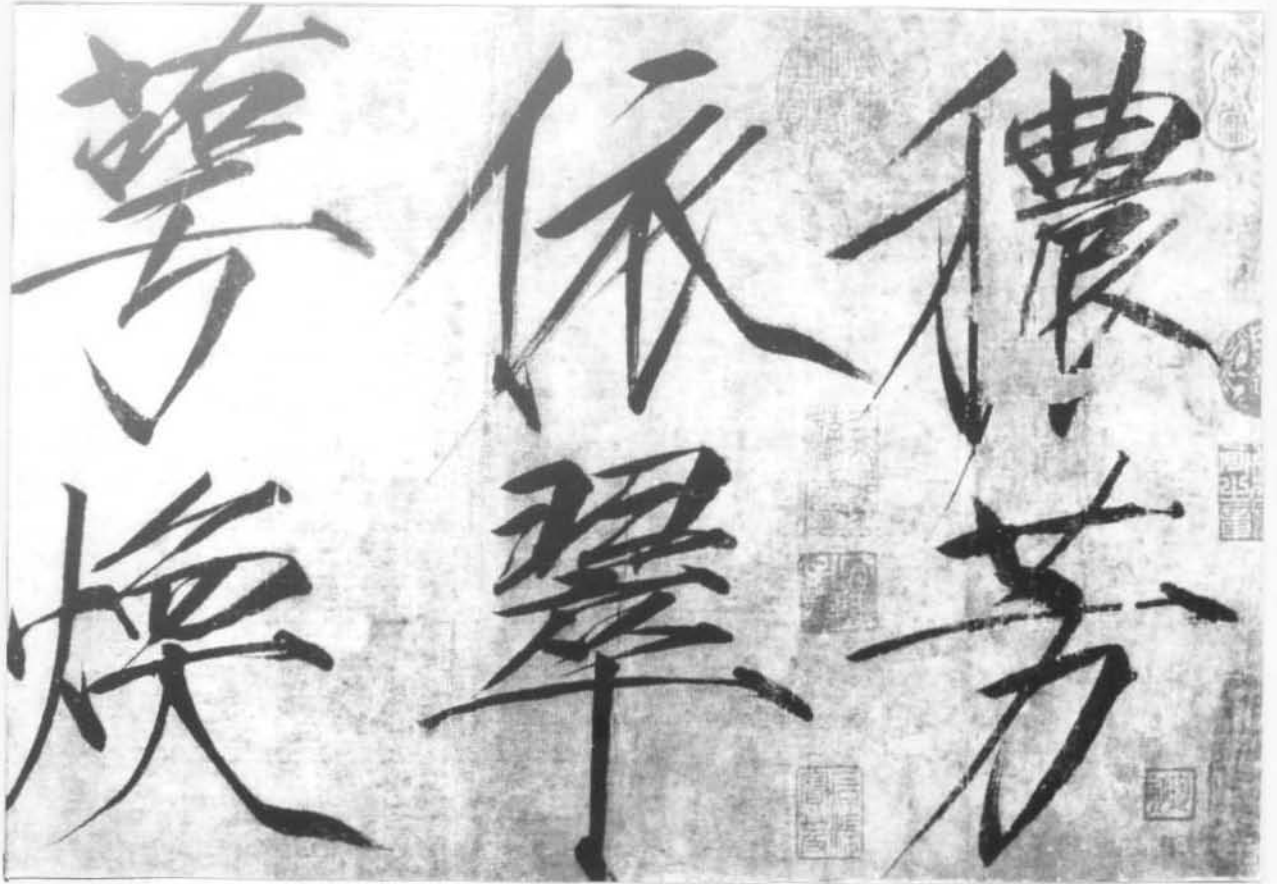 穠芳
依翠
萼煥